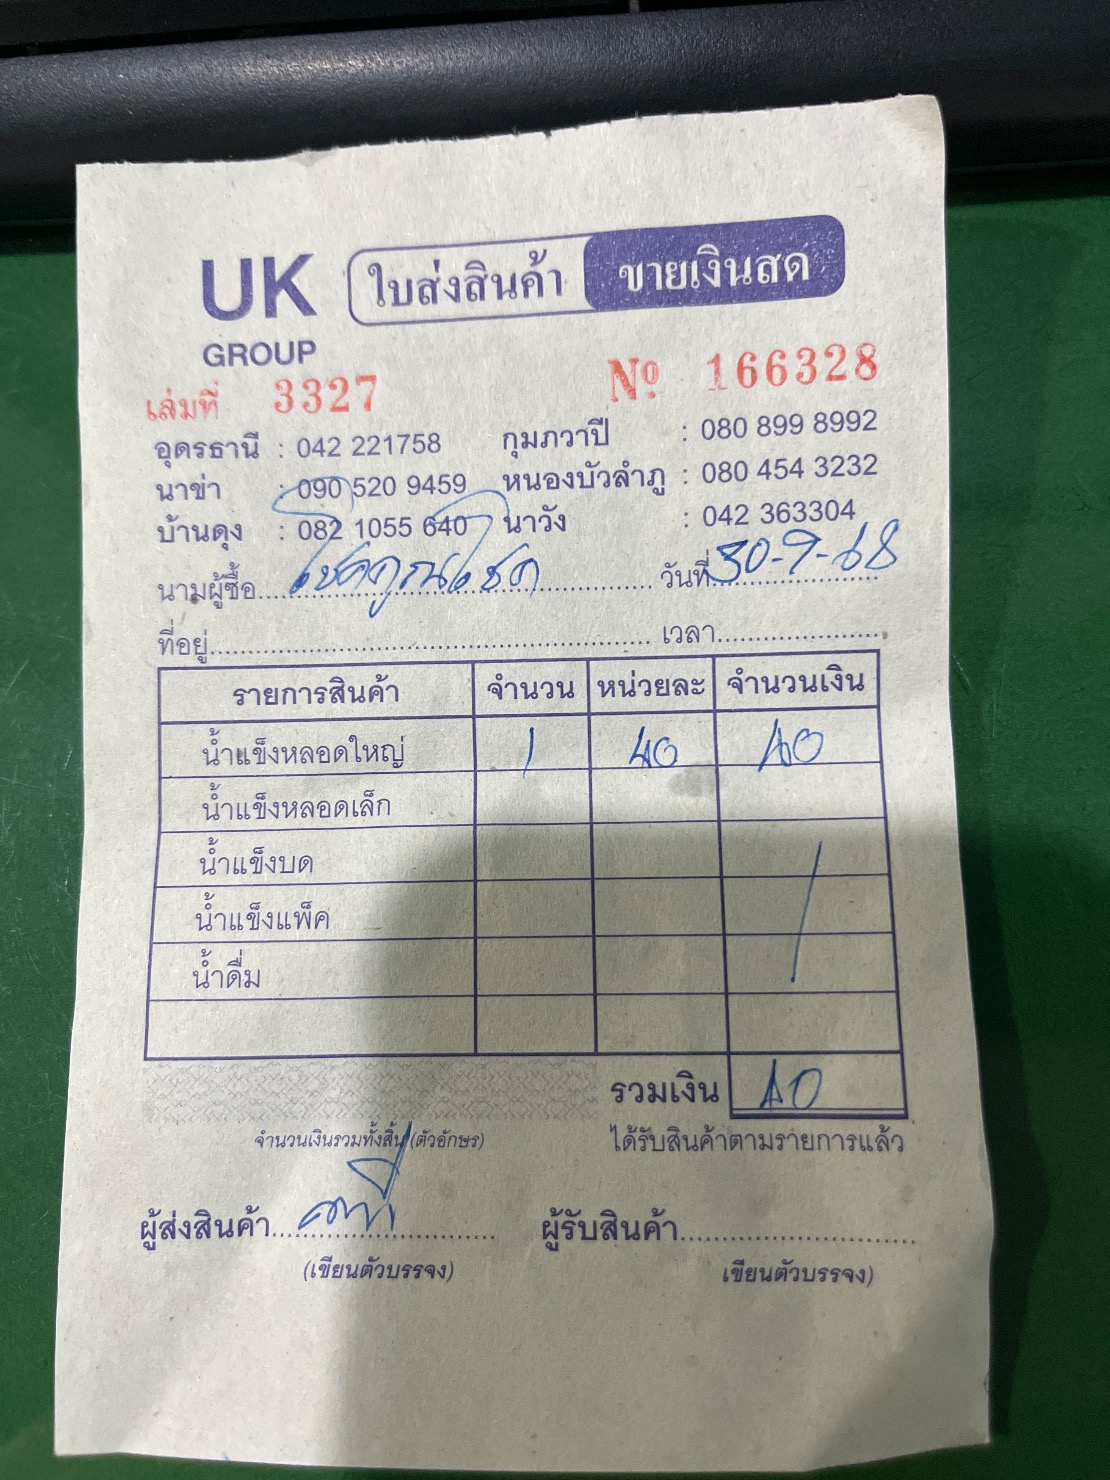 UK ใบส่งสินค้า ขายเงินสด
GROUP
เล่มที่ 3327 Nº 166328
อุดรธานี : 042 221758 กุมภวาปี : 080 899 8992
นาข่า : 090 520 9459 หนองบัวลำภู : 080 454 3232
บ้านดุง : 082 1055 640 นาวัง : 042 363304
นามผู้ซื้อ โชคคูณโชค วันที่ 30-9-68
ที่อยู่ เวลา
รายการสินค้า จำนวน หน่วยละ จำนวนเงิน
น้ำแข็งหลอดใหญ่ 1 40 40
น้ำแข็งหลอดเล็ก
น้ำแข็งบด
น้ำแข็งแพ็ค
น้ำดื่ม
รวมเงิน 40
จำนวนเงินรวมทั้งสิ้น (ตัวอักษร) ได้รับสินค้าตามรายการแล้ว
ผู้ส่งสินค้า ผู้รับสินค้า
(เขียนตัวบรรจง) เขียนตัวบรรจง)